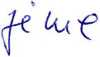 je me